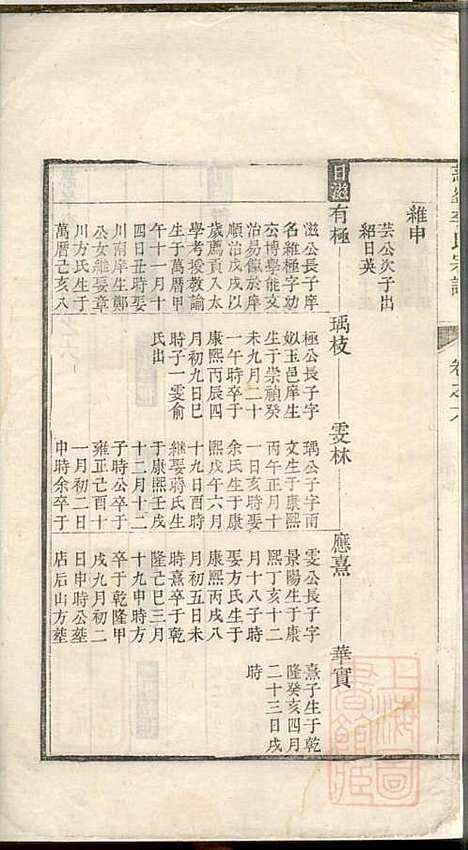 氏宗譜
卷之六
雒申
芸公次子出
紹日英
日滋
有極
滋公長子庠
名維極字幼
博學能文
治易餼於庠
順治戊戌以
歲薦貢入太
學考授教諭
生于萬曆甲
午十一月十
四日丑時娶
川南庠生鄭
公女雒娶章
川方氏生于
萬曆己亥八
瑀枝
極公長子字
姒玉邑庠生
生于崇禎癸
未九月二十
一午時卒于
康熙丙辰四
月初九日巳
時子一雯俞
氏出
雯林
瑀公子字雨
文生于康熙
丙午正月十
一日亥時娶
余氏生于康
熙戊午六月
十九日酉時
継娶蔣氏生
于康熙壬戌
十二月十二
子時公卒于
雍正己酉十
一月初二日
申時余卒于
應熹
雯公長子字
景陽生于康
熙丁亥十二
月十八子時
娶方氏生于
康熙丙戌八
月初五日未
時熹卒于乾
隆己巳三月
十九申時方
卒于乾隆甲
戌九月初二
日申時公塟
店后山方塟
華實
熹子生于乾
隆癸亥四月
二十三日戌
時
上海圖書館藏